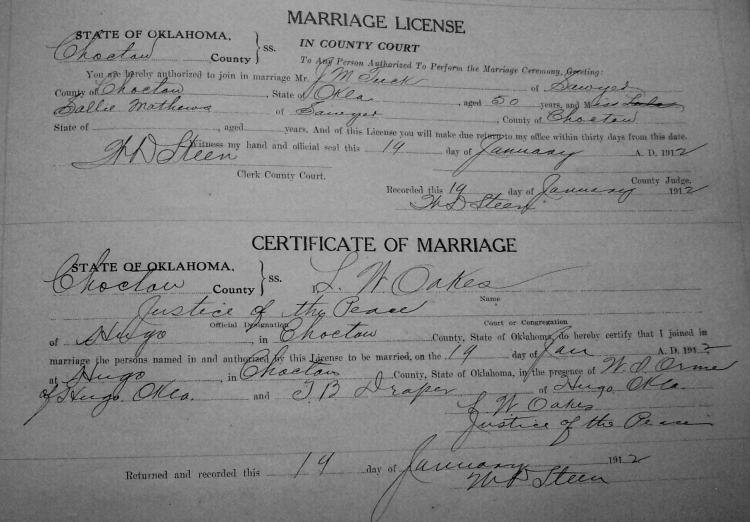 MARRIAGE LICENSE
STATE OF OKLAHOMA,
Choctaw County } ss.
IN COUNTY COURT
To Any Person Authorized To Perform the Marriage Ceremony, Greeting:
You are hereby authorized to join in marriage Mr. J M Tuck of Sawyer
County of Choctaw, State of Okla, aged 50 years, and Miss
Sallie Mathews of Sawyer, County of Choctaw
State of , aged years. And of this License you will make due return to my office within thirty days from this date.
Witness my hand and official seal this 19 day of January A. D. 1912
W D Steen
Clerk County Court. County Judge.
Recorded this 19 day of January 1912
W D Steen
CERTIFICATE OF MARRIAGE
STATE OF OKLAHOMA,
Choctaw County } ss. I L. W Oakes
Name
Justice of the Peace
Official Designation Court or Congregation
of Hugo, in Choctaw County, State of Oklahoma, do hereby certify that I joined in
marriage the persons named in and authorized by this License to be married, on the 19 day of Jan A. D. 1912
at Hugo, in Choctaw County, State of Oklahoma, in the presence of W. S. Orme
of Hugo Okla. and T B Draper of Hugo Okla.
L W Oakes
Justice of the Peace
Returned and recorded this 19 day of January 1912
W D Steen